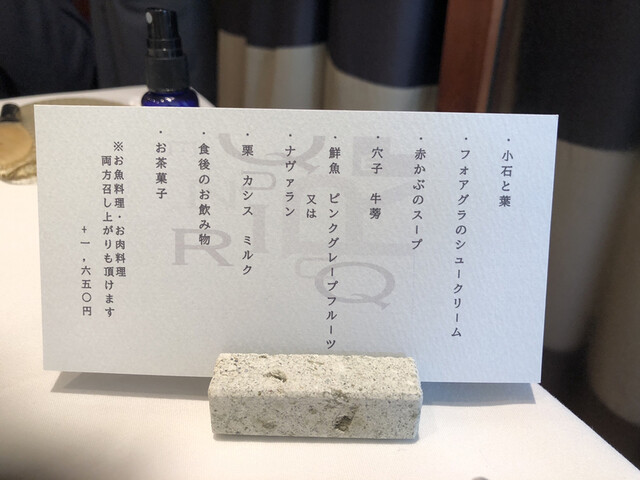 ・小石と葉
・フォアグラのシュークリーム
・赤かぶのスープ
・穴子 牛蒡
・鮮魚 ピンクグレープフルーツ
又は
・ナヴァラン
・栗 カシス ミルク
・食後のお飲み物
・お茶菓子
※お魚料理・お肉料理
両方召し上がりも頂けます
+一,六五〇円